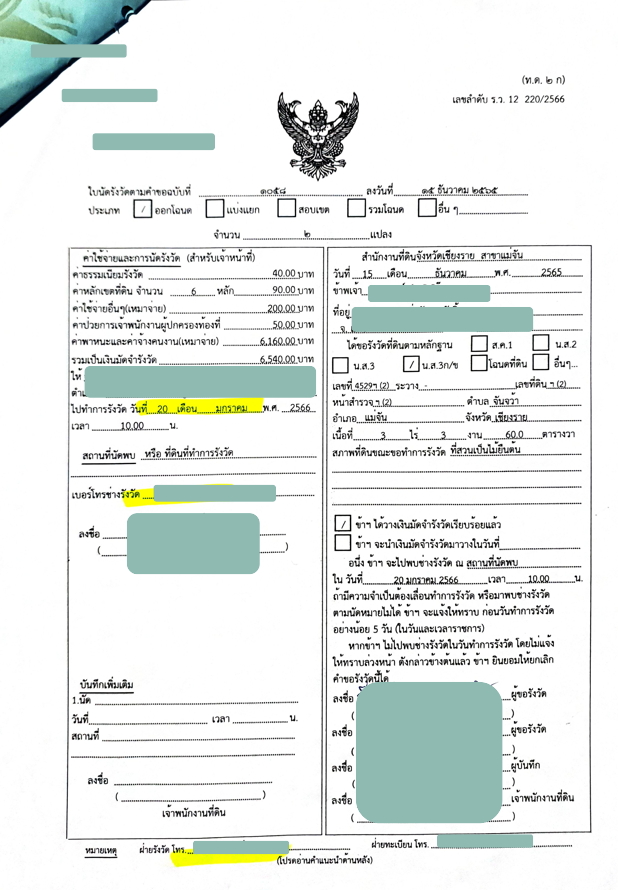 (ท.ด. ๒ ก)
เลขลำดับ ร.ว. 12 220/2566
ใบนัดรังวัดตามคำขอฉบับที่ ๑๐๕๘ ลงวันที่ ๑๕ ธันวาคม ๒๕๖๕
ประเภท / ออกโฉนด แบ่งแยก สอบเขต รวมโฉนด อื่น ๆ
จำนวน ๒ แปลง
ค่าใช้จ่ายและการนัดรังวัด (สำหรับเจ้าหน้าที่)
ค่าธรรมเนียมรังวัด 40.00 บาท
ค่าหลักเขตที่ดิน จำนวน 6 หลัก 90.00 บาท
ค่าใช้จ่ายอื่นๆ(เหมาจ่าย) 200.00 บาท
ค่าป่วยการเจ้าพนักงานผู้ปกครองท้องที่ 50.00 บาท
ค่าพาหนะและค่าจ้างคนงาน(เหมาจ่าย) 6,160.00 บาท
รวมเป็นเงินมัดจำรังวัด 6,540.00 บาท
ให้
ไปทำการรังวัด วันที่ 20 เดือน มกราคม พ.ศ. 2566
เวลา 10.00 น.
สถานที่นัดพบ หรือ ที่ดินที่ทำการรังวัด
เบอร์โทรช่างรังวัด
ลงชื่อ
( )
บันทึกเพิ่มเติม
1.นัด
วันที่ เวลา น.
สถานที่
ลงชื่อ
( )
เจ้าพนักงานที่ดิน
สำนักงานที่ดินจังหวัดเชียงราย สาขาแม่จัน
วันที่ 15 เดือน ธันวาคม พ.ศ. 2565
ข้าพเจ้า
ที่อยู่
จ.
ได้ขอรังวัดที่ดินตามหลักฐาน ส.ค.1 น.ส.2
น.ส.3 / น.ส.3ก/ข โฉนดที่ดิน อื่นๆ...
เลขที่ 4529ฯ (2) ระวาง - เลขที่ดิน ฯ (2)
หน้าสำรวจ ฯ (2) ตำบล จันจว้า
อำเภอ แม่จัน จังหวัด เชียงราย
เนื้อที่ 3 ไร่ 3 งาน 60.0 ตารางวา
สภาพที่ดินขณะขอทำการรังวัด ที่สวนเป็นไม้ยืนต้น
/ ข้าฯ ได้วางเงินมัดจำรังวัดเรียบร้อยแล้ว
ข้าฯ จะนำเงินมัดจำรังวัดมาวางในวันที่
อนึ่ง ข้าฯ จะไปพบช่างรังวัด ณ สถานที่นัดพบ
ใน วันที่ 20 มกราคม 2566 เวลา 10.00 น.
ถ้ามีความจำเป็นต้องเลื่อนทำการรังวัด หรือมาพบช่างรังวัด
ตามนัดหมายไม่ได้ ข้าฯ จะแจ้งให้ทราบ ก่อนวันทำการรังวัด
อย่างน้อย 5 วัน (ในวันและเวลาราชการ)
หากข้าฯ ไม่ไปพบช่างรังวัดในวันทำการรังวัด โดยไม่แจ้ง
ให้ทราบล่วงหน้า ดังกล่าวข้างต้นแล้ว ข้าฯ ยินยอมให้ยกเลิก
คำขอรังวัดนี้ได้
ลงชื่อ ผู้ขอรังวัด
( )
ลงชื่อ ผู้ขอรังวัด
( )
ลงชื่อ ผู้บันทึก
( )
ลงชื่อ เจ้าพนักงานที่ดิน
( )
หมายเหตุ ฝ่ายรังวัด โทร. ฝ่ายทะเบียน โทร.
(โปรดอ่านคำแนะนำด้านหลัง)